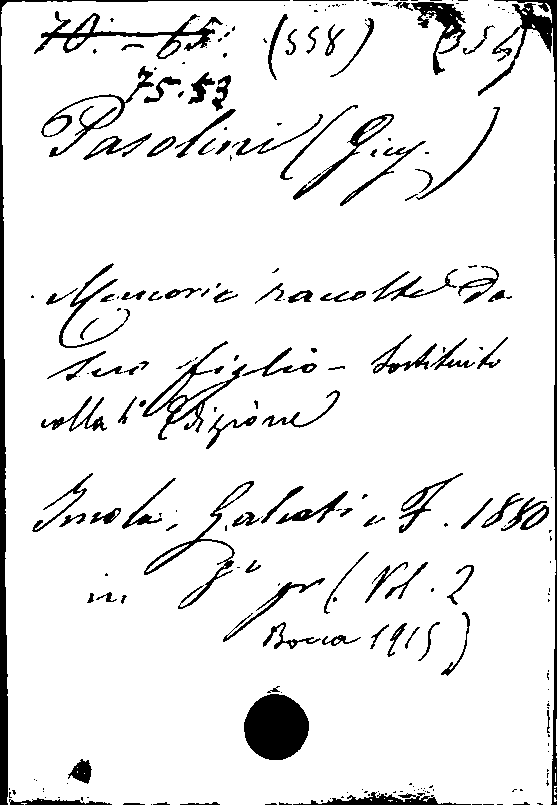 70. - 65. (558) (354)
75.53
Pasolini (Gius.)
Memorie raccolte da
suo figlio - Sostituito
colla 4ª Edizione
Imola, Galeati e F. 1880
in 8º gr (. Vol. 2
Bocca 1915)